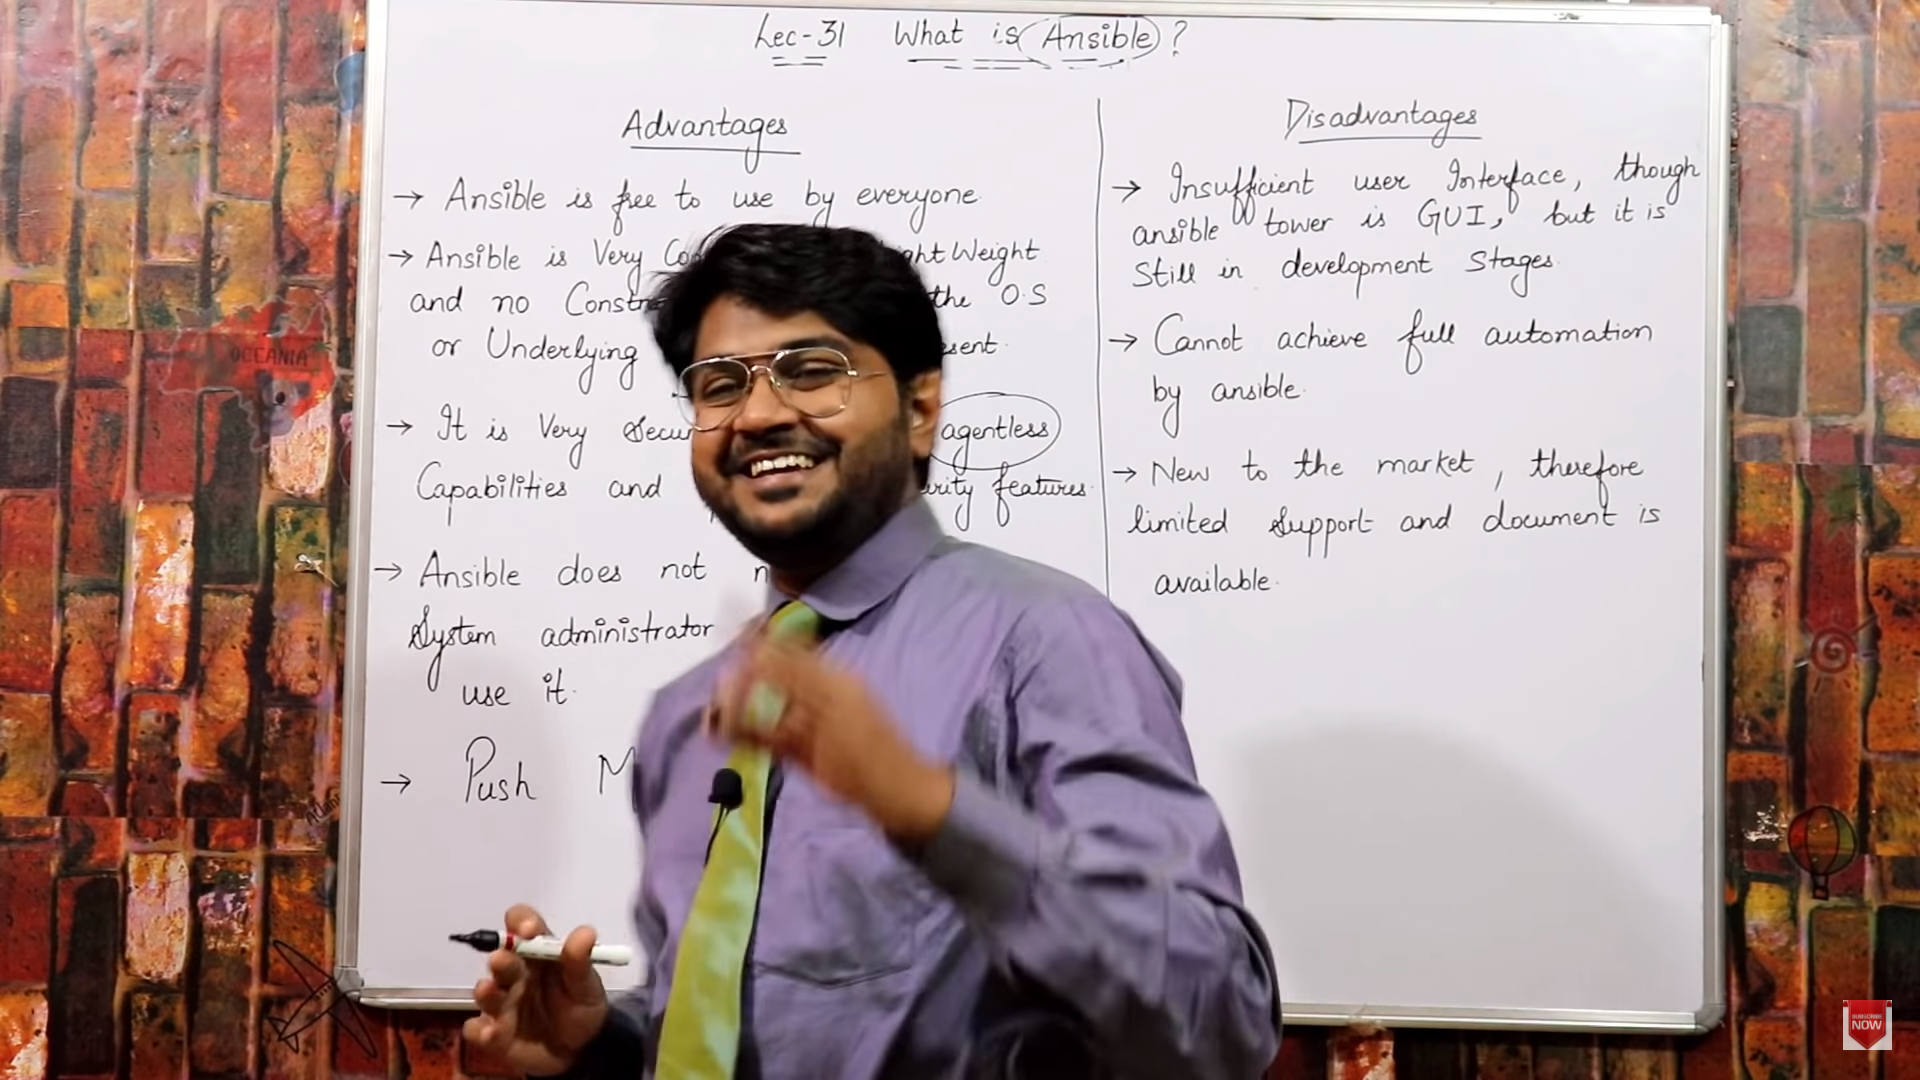 Lec-31 What is Ansible ?
Advantages
→ Ansible is free to use by everyone.
→ Ansible is Very Weight
and no the O.S
or Underlying
→ It is Very agentless
Capabilities and features.
→ Ansible does not
System administrator
use it.
→ Push
Disadvantages
→ Insufficient user Interface, though
ansible tower is GUI, but it is
Still in development Stages.
→ Cannot achieve full automation
by ansible.
→ New to the market, therefore
limited Support and document is
available.
OCEANIA
SUBSCRIBE
NOW